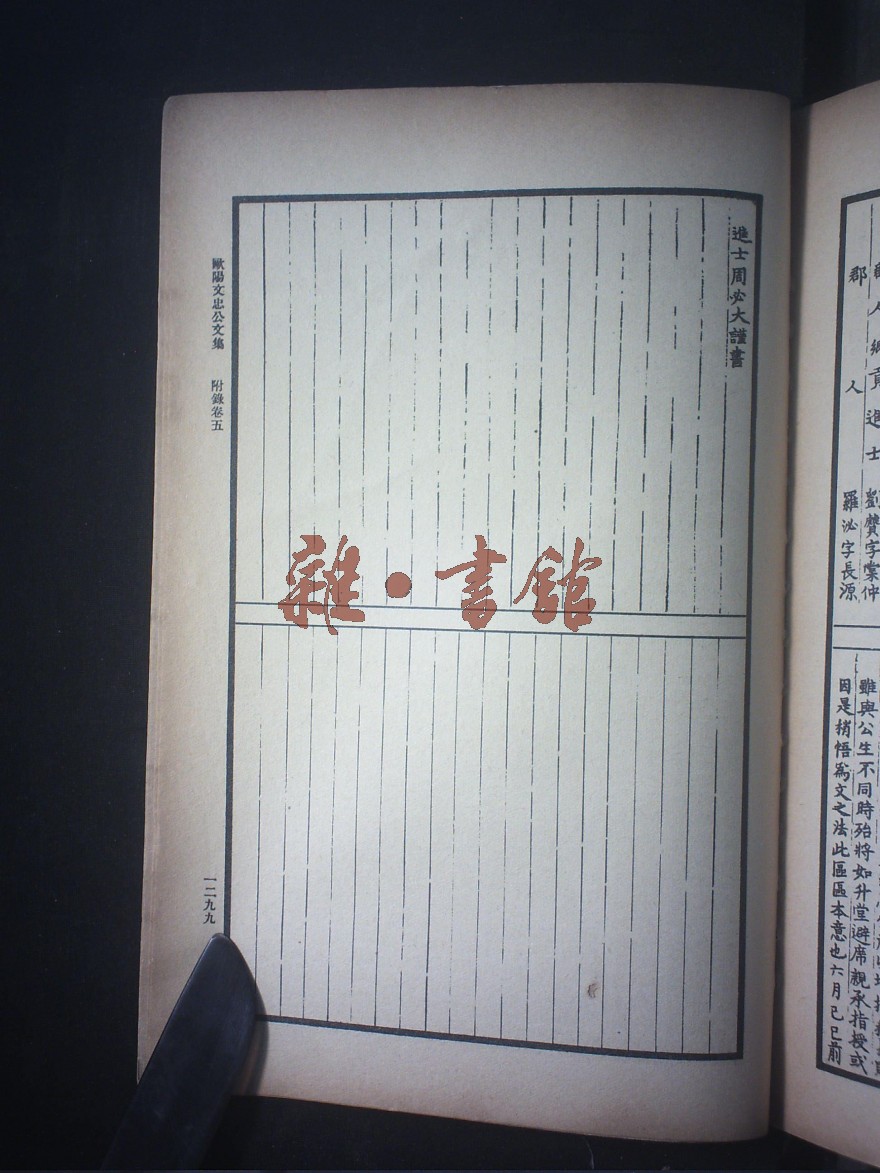 郡人
劉贊字棠仲
羅泌字長源
雖與公生不同時殆將如升堂避席親承指授或
因是稍悟為文之法此區區本意也六月己巳前
進士周必大謹書
歐陽文忠公文集 附錄卷五
一二九九
雜・書館